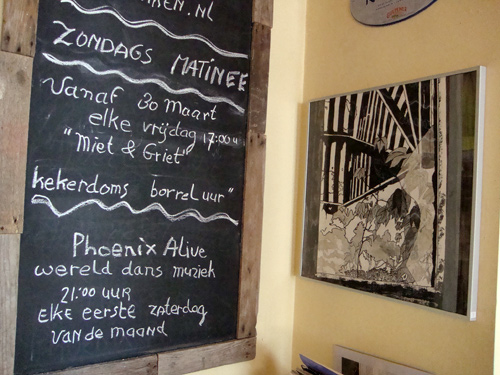 KEN.NL
ZONDAGS MATINEE
Vanaf 30 maart
elke vrijdag 17:00 u
"Miet & Griet"
kekerdoms borreluur"
Phoenix Alive
wereld dans muziek
21:00 UUR
ELKE EERSTE ZATERDAG
VAN DE MAAND